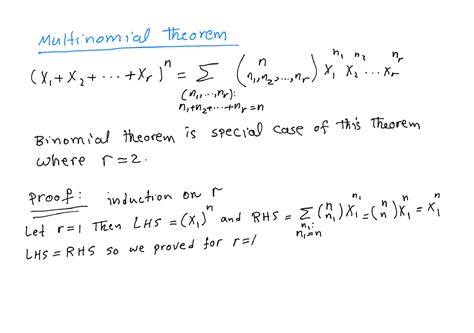 Multinomial theorem
(X₁+X₂+⋯+Xᵣ)ⁿ = Σ_{(n₁,…,nᵣ): n₁+n₂+⋯+nᵣ=n} (n / n₁,n₂,…,nᵣ) X₁^{n₁} X₂^{n₂} … Xᵣ^{nᵣ}
Binomial theorem is special case of this Theorem
where r=2.
Proof: induction on r
Let r=1 Then LHS = (X₁)ⁿ and RHS = Σ_{n₁: n₁=n} (n / n₁) X₁^{n₁} = (n / n) X₁ⁿ = X₁ⁿ
LHS = RHS so we proved for r=1